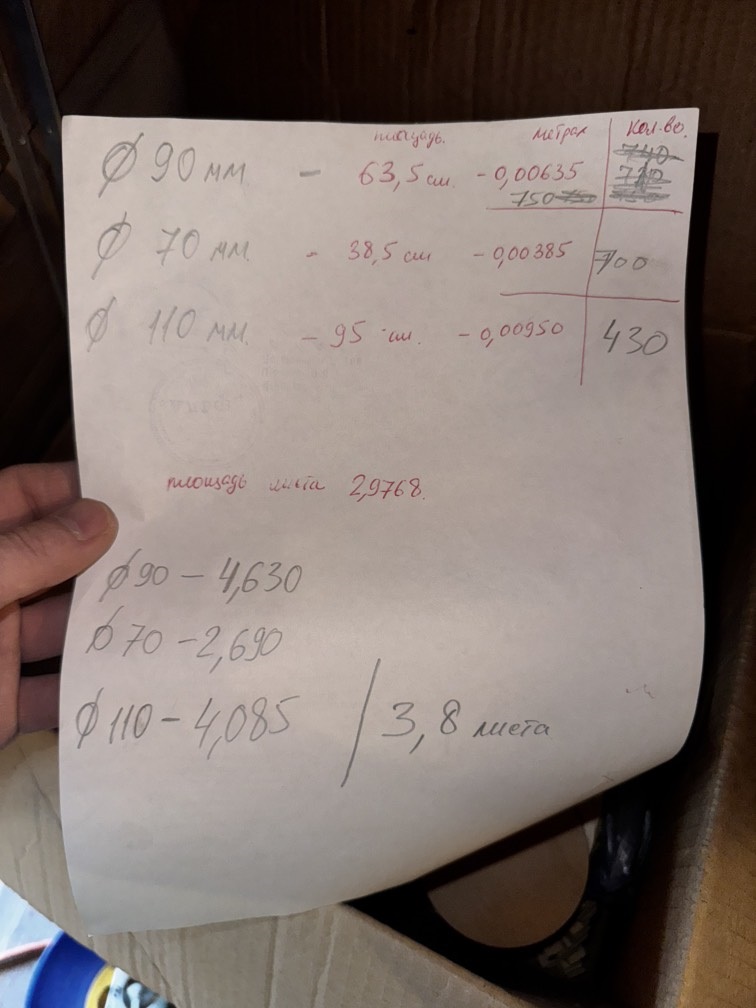 площадь. метрах кол-во.
∅ 90 мм. - 63,5 см. - 0,00635
750
∅ 70 мм. - 38,5 см - 0,00385 700
∅ 110 мм. - 95 см. - 0,00950 430
площадь листа 2,9768.
∅90 - 4,630
∅70 - 2,690
∅110 - 4,085 / 3,8 листа